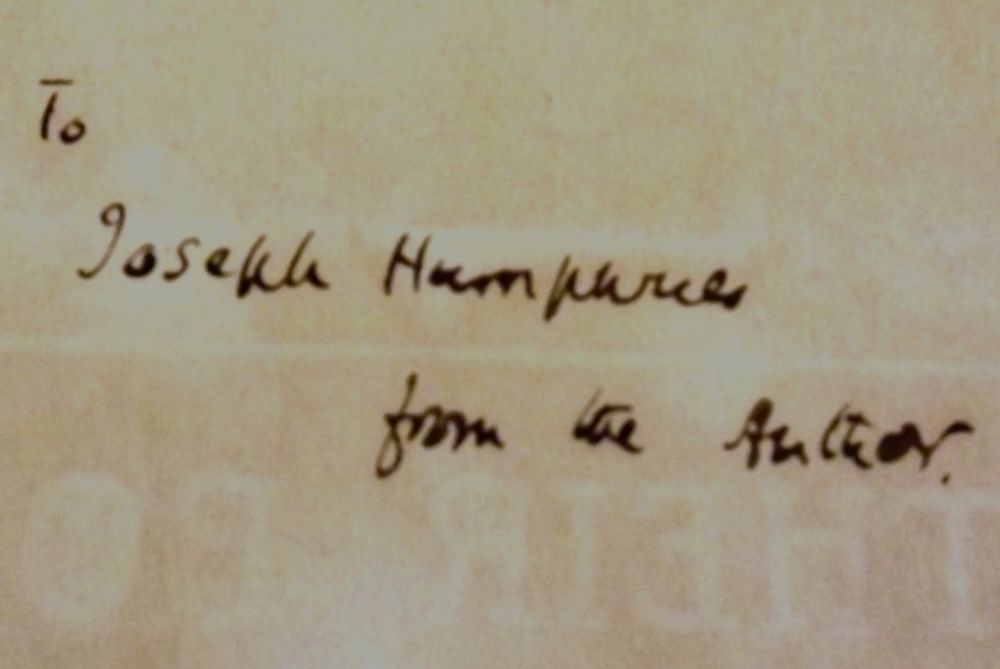 To
Joseph Humphries
from the Author.